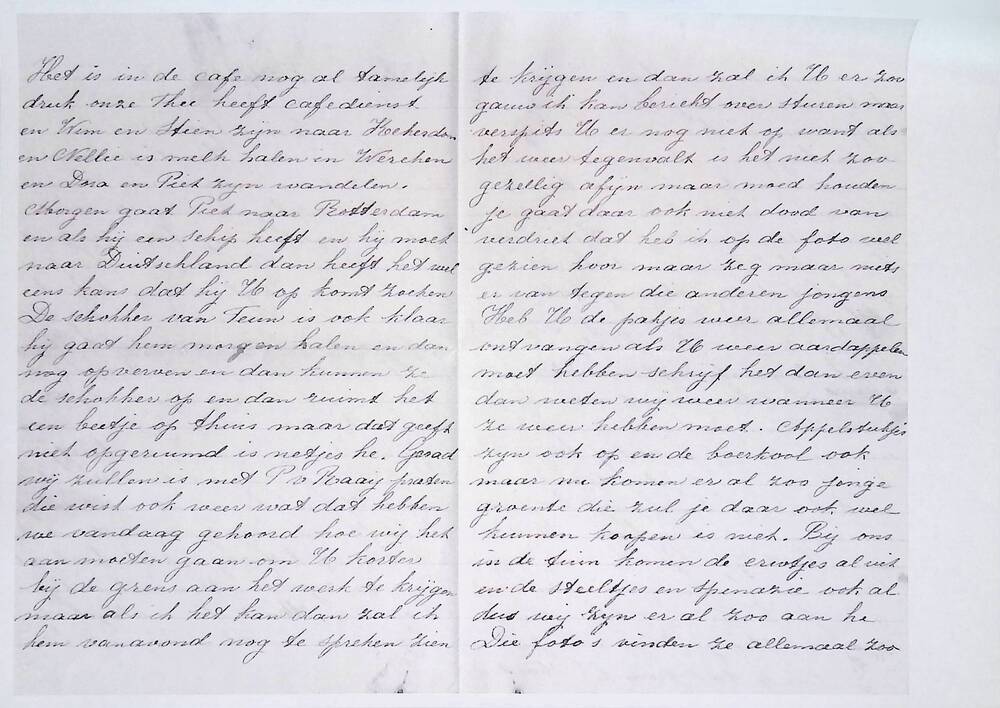 Het is in de cafe nog al tamelijk
druk onze Thee heeft cafedienst
en Wim en Stien zijn naar Hekerdom
en Nellie is melk halen in Werchen
en Dora en Piet zijn wandelen.
Morgen gaat Piet naar Rotterdam
en als hij een schip heeft en hij moet
naar Duitschland dan heeft het wel
eens kans dat hij U op komt zoeken
De schokker van Teun is ook klaar
hij gaat hem morgen halen en dan
nog opverven en dan kunnen ze
de schokker op en dan ruimt het
een beetje op thuis maar dat geeft
niet opgeruimd is netjes he. Gerad
wij zullen is met P v Raaij praten
die wist ook weer wat dat hebben
we vandaag gehoord hoe wij het
aan moeten gaan om U korter
bij de grens aan het werk te krijgen
maar als ik het kan dan zal ik
hem vanavond nog te spreken zien
te krijgen en dan zal ik U er zoo
gauw ik kan bericht over sturen maar
verspits U er nog niet op want als
het weer tegenvalt is het niet zoo
gezellig afijn maar moed houden
je gaat daar ook niet dood van
verdriet dat heb ik op de foto wel
gezien hoor maar zeg maar niets
er van tegen die anderen jongens
Heb U de pakjes weer allemaal
ontvangen als U weer aardappelen
moet hebben schrijf het dan even
dan weten wij weer wanneer U
ze weer hebben moet. Appelstukjes
zijn ook op en de boerkool ook
maar nu komen er al zoo jonge
groente die zul je daar ook wel
kunnen koopen is niet. Bij ons
in de tuin komen de erwtjes al uit
en de steeltjes en spenazie ook al
dus wij zijn er al zoo aan he
Die foto's vinden ze allemaal zoo